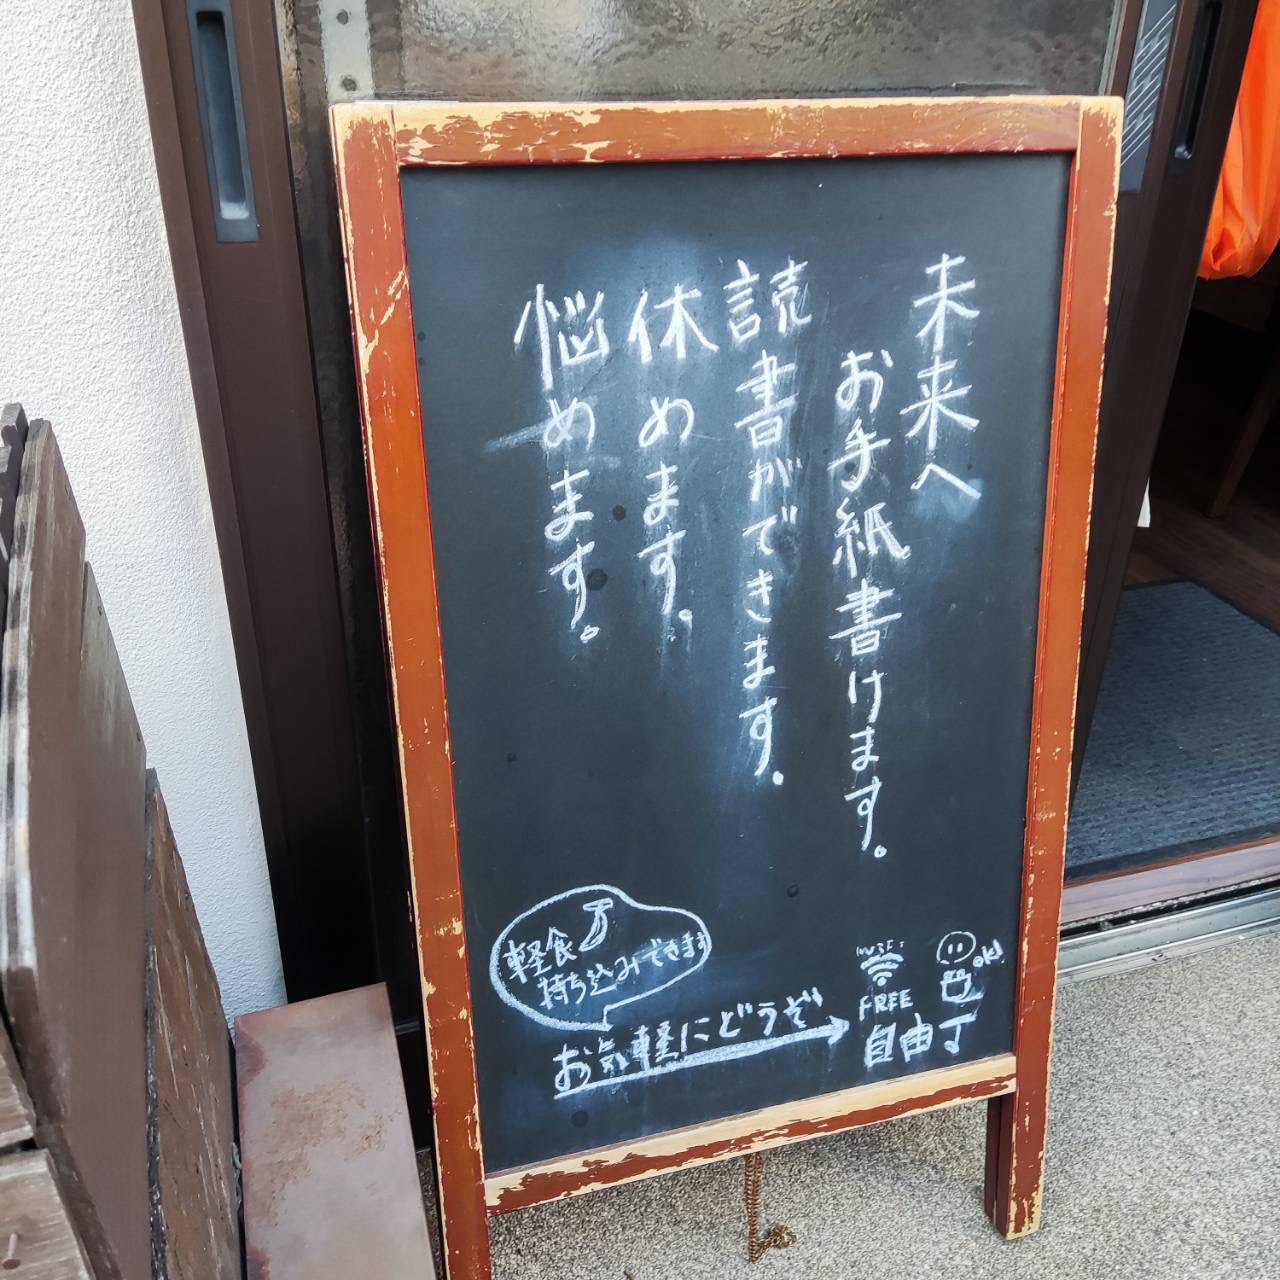 未来へ
お手紙書けます。
読書ができます。
休めます。
悩めます。
軽食
持ち込みできます
お気軽にどうぞ
FREE
OK!
自由丁